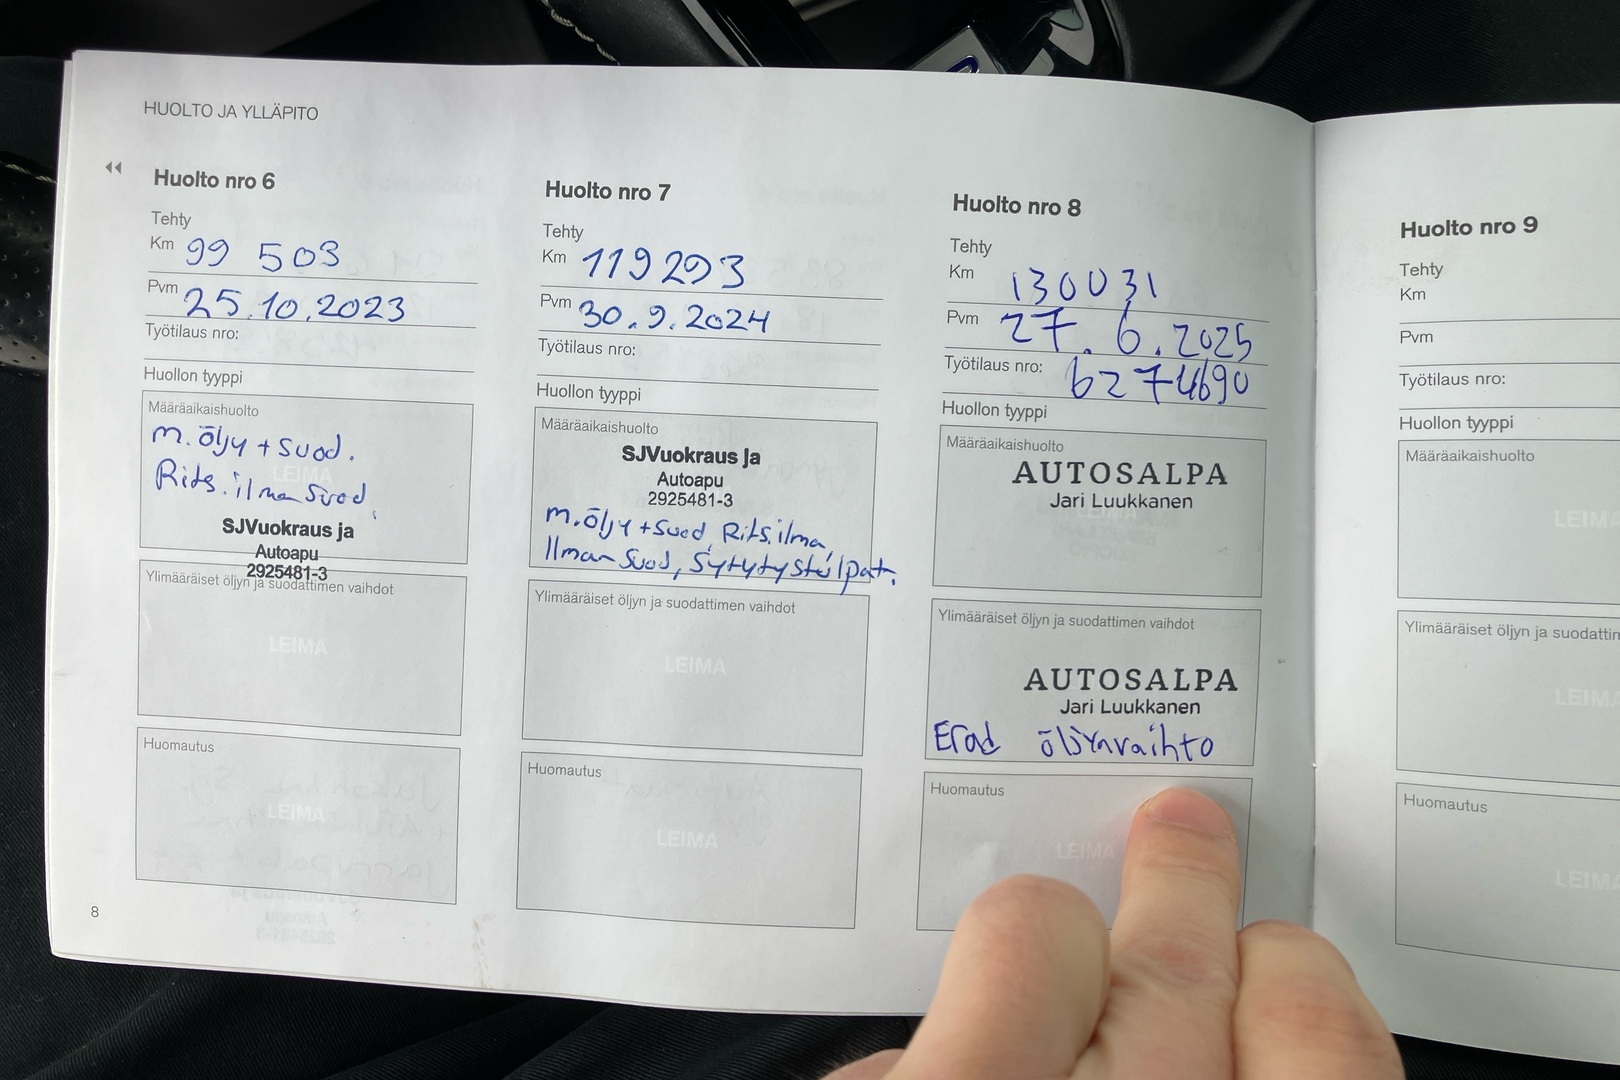 HUOLTO JA YLLÄPITO
Huolto nro 6
Tehty
Km 99 503
Pvm 25.10.2023
Työtilaus nro:
Huollon tyyppi
Määräaikaishuolto
m. öljy + suod.
Rits. ilman suod.
LEIMA
SJVuokraus ja
Autoapu
2925481-3
Ylimääräiset öljyn ja suodattimen vaihdot
LEIMA
Huomautus
LEIMA
8
Huolto nro 7
Tehty
Km 119293
Pvm 30.9.2024
Työtilaus nro:
Huollon tyyppi
Määräaikaishuolto
SJVuokraus ja
Autoapu
2925481-3
m. öljy + suod, Rits. ilma,
Ilman suod, Sytytystulpat.
Ylimääräiset öljyn ja suodattimen vaihdot
LEIMA
Huomautus
LEIMA
Huolto nro 8
Tehty
Km 130031
Pvm 27.6.2025
Työtilaus nro: 6274690
Huollon tyyppi
Määräaikaishuolto
AUTOSALPA
Jari Luukkanen
Ylimääräiset öljyn ja suodattimen vaihdot
AUTOSALPA
Jari Luukkanen
Erad öljynvaihto
Huomautus
LEIMA
Huolto nro 9
Tehty
Km
Pvm
Työtilaus nro:
Huollon tyyppi
Määräaikaishuolto
LEIMA
Ylimääräiset öljyn ja suodattin
LEIMA
Huomautus
LEIMA